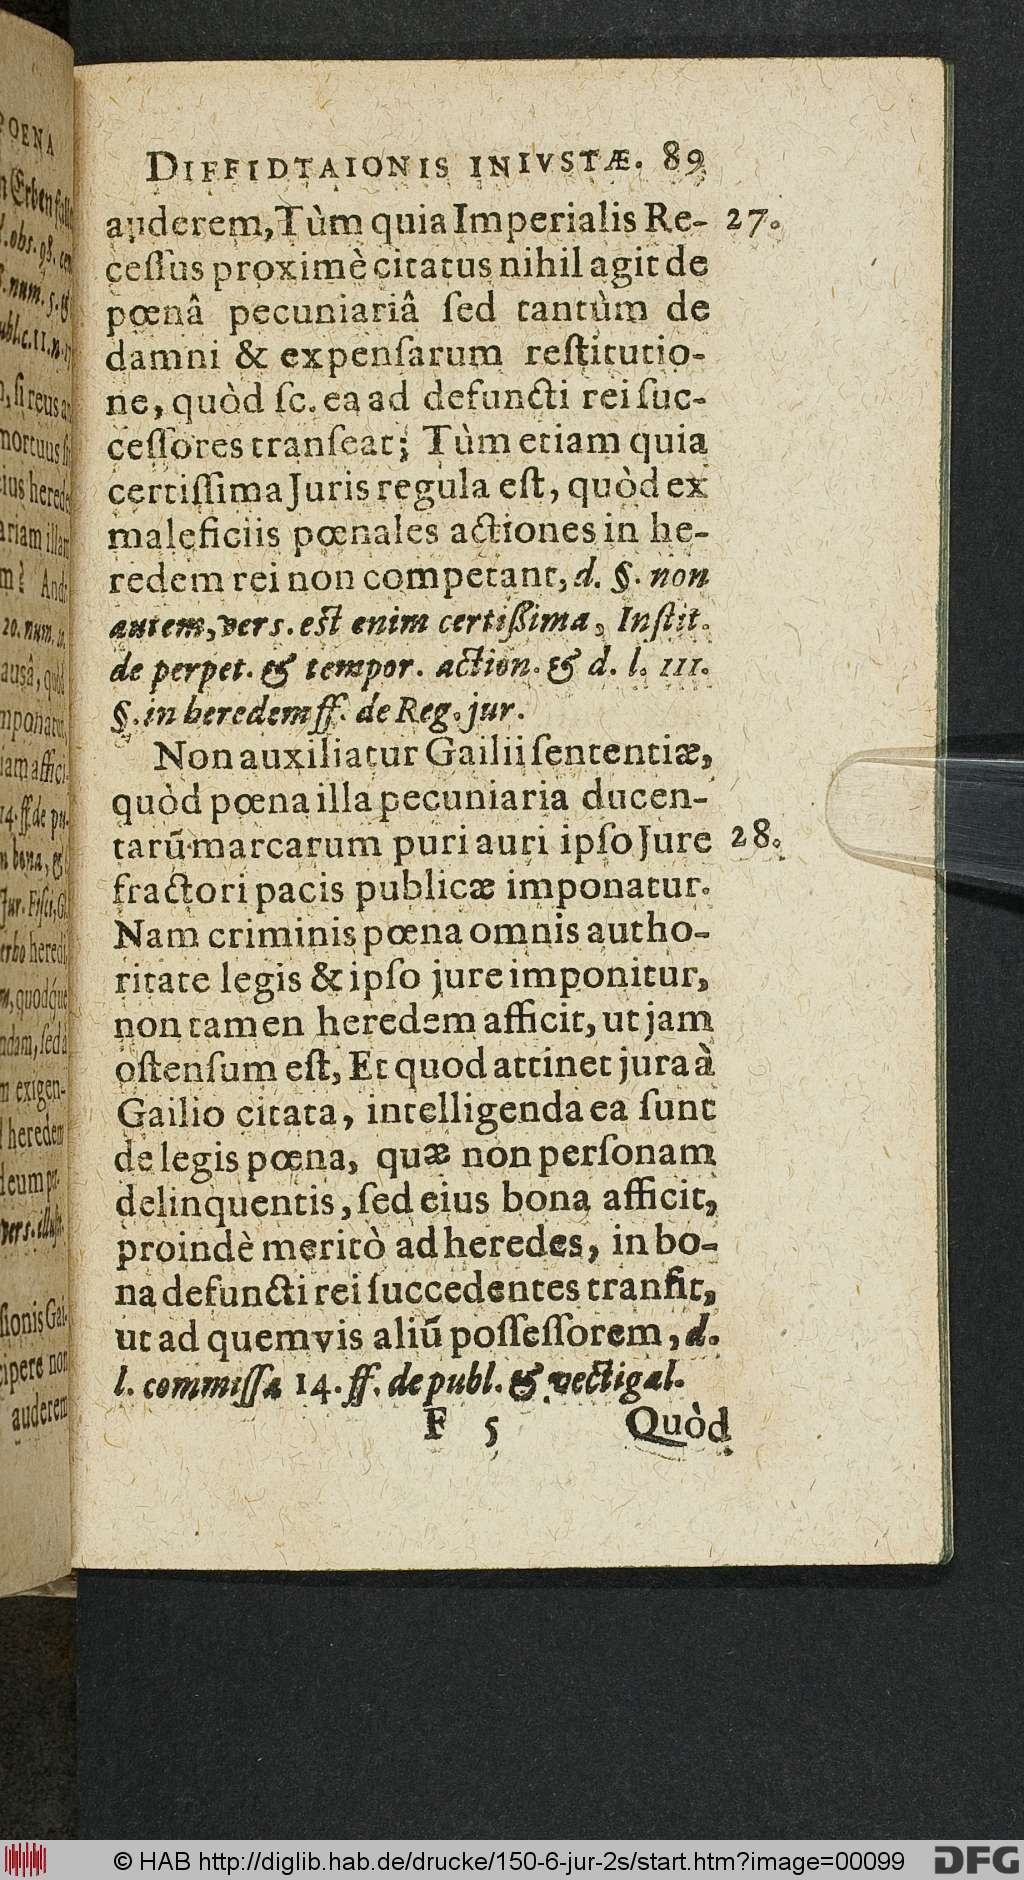 POENA
DIFFIDTAIONIS INIVSTÆ. 89
auderem, Tùm quia Imperialis Re- 27.
ceſſus proximè citatus nihil agit de
pœnâ pecuniariâ ſed tantùm de
damni & expenſarum reſtitutio-
ne, quòd ſc. ea ad defuncti rei ſuc-
ceſſores tranſeat; Tùm etiam quia
certiſſima Juris regula eſt, quòd ex
maleficiis pœnales actiones in he-
redem rei non competant, d. §. non
autem, vers. est enim certißima, Inſtit.
de perpet. & tempor. action. & d. l. 111.
§. in heredem ff. de Reg. jur.
Non auxiliatur Gailii ſententiæ,
quòd pœna illa pecuniaria ducen-
tarũ marcarum puri auri ipſo Jure 28.
fractori pacis publicæ imponatur.
Nam criminis pœna omnis autho-
ritate legis & ipſo jure imponitur,
non tamen heredem afficit, ut jam
oſtenſum eſt, Et quod attinet jura à
Gailio citata, intelligenda ea ſunt
de legis pœna, quæ non perſonam
delinquentis, ſed eius bona afficit,
proindè meritò ad heredes, in bo-
na defuncti rei ſuccedentes tranſit,
ut ad quemvis aliũ poſſeſſorem, d.
l. commiſſa 14. ff. de publ. & vectigal.
F 5 Quòd
© HAB http://diglib.hab.de/drucke/150-6-jur-2s/start.htm?image=00099
DFG